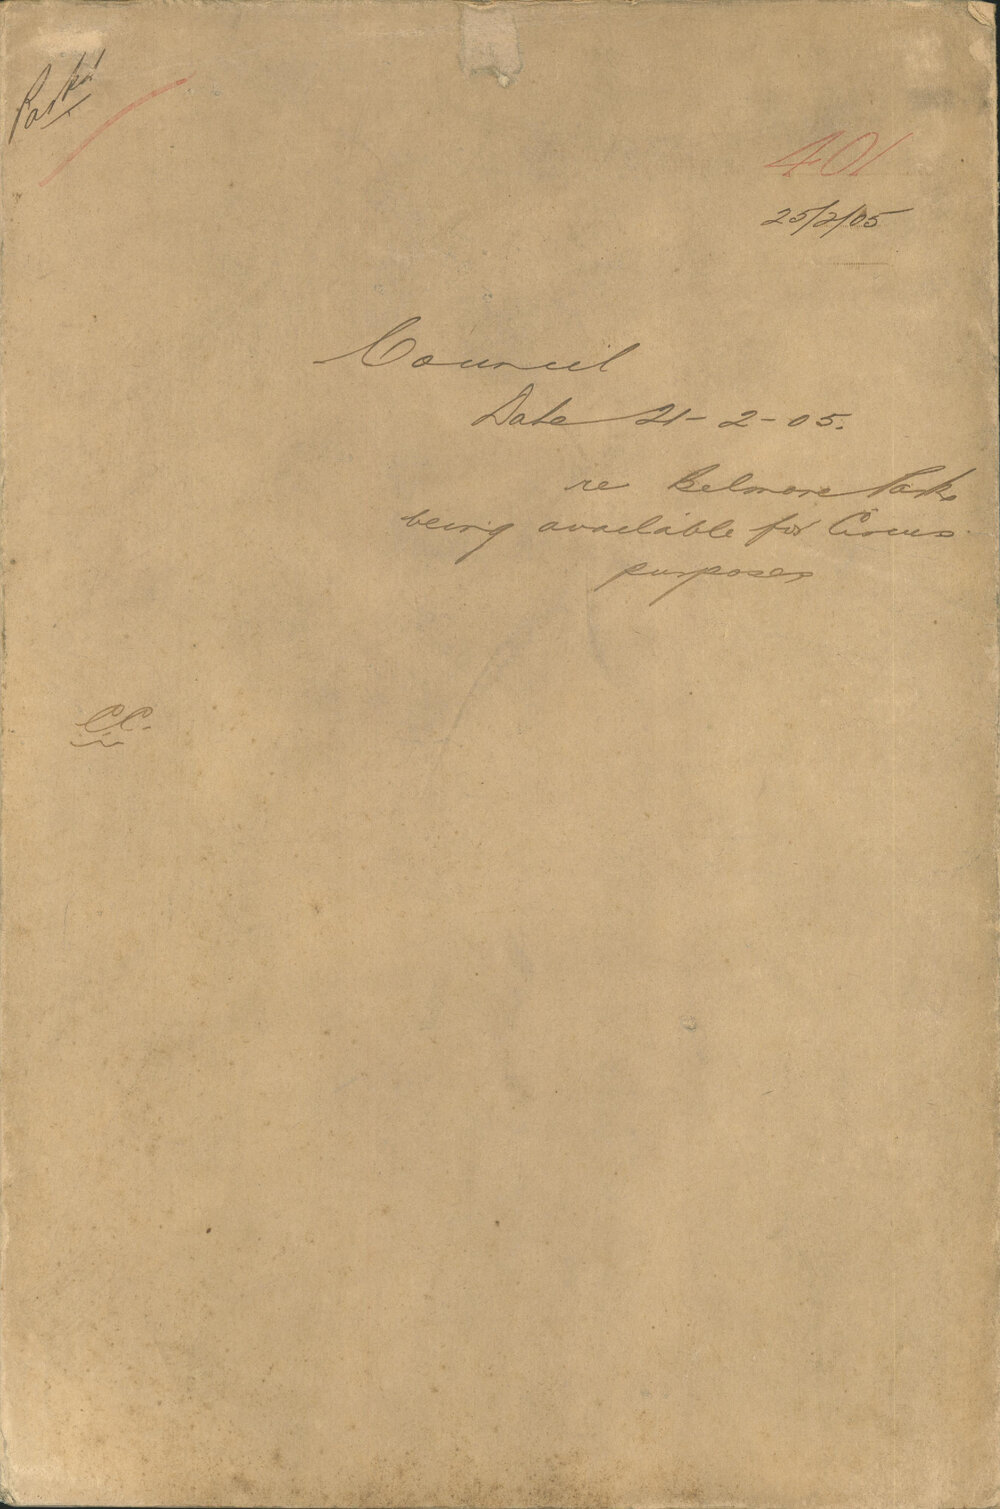 Parks
401
25/2/05
Council
Date 21-2-05.
re Belmore Park
being available for Circus
purposes
C.C.